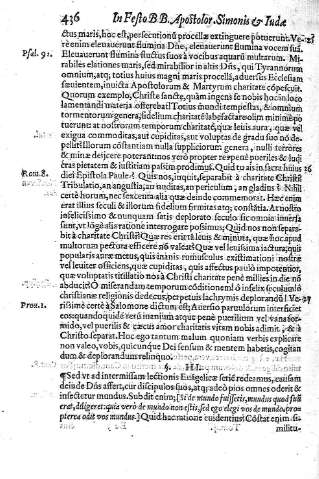 436 In Festo B B. Apostolor. Simonis & Iudæ
ctus maris, hoc est, persecutionũ procellæ extinguere potuerunt. Ve-
rè enim eleuauerunt flumina Dñe, eleuauerunt flumina vocem suã.
Psal. 92. Eleuauerunt flumina fluctus suos à vocibus aquarũ multarum. Mi-
rabiles elationes maris, sed mirabilior in altis Dñs, qui Tyrannorum
omnium, atq; totius huius magni maris procellã, aduersus Ecclesiam
sæuientem, inuicta Apostolorum & Martyrum charitate cõpescuit.
Quorum exemplo, Christe sancte, quàm ingens se nobis hodie
lamentandi materia offerebat! Totius mundi tempestas, & omnium
tormentorum genera, fidelium charitatẽ labefactare olim minimè
& nostrorum temporum charitatẽ, quæ leuis aura, quæ vel
exigua commoditas, aut cupiditas, aut voluptas de gradu suo nõ de-
illorum cõstantiam nulla suppliciorum genera, nulli terrores
& minæ deijcere poterant: nos verò propter res penè pueriles & ludi
cras pietatem & iustitiam passim prodimus. Quid tu ais in sacra huius
Rom. 8. diei Epistola Paule? Quis nos, inquit, separabit à charitate Christi?
Tribulatio, an angustia, an nuditas, an periculum, an gladius? Nihil
certè horum, nec sexcenta alia quæ deinde commemorat. Hæc enim
erat illius sæculi & illorum fidelium firmitas atq; constãtia. At nostro
infelicissimo & nunquam satis deplorato seculo
sunt, vt longè alia ratione interrogare possimus. Quæ nos non separa-
bit à charitate Christi? Quæ res erit tã leuis & minuta, quæ hoc apud
multorum pectora efficere nõ valeat? Quæ vel leuissima iactura; quis
popularis auræ metus, quis inanis rumusculus existimationi nostræ
vel leuiter officiens, quæ cupiditas, quis affectus paulò impotentior,
quæ voluptatis titillatio nos à Christi charitate penè millies in die nõ
abducit? O miserandam temporum cõditionem! ô infelix seculum! ô
christianæ religionis dedecus, perpetuis lachrymis deplorandũ! Ve-
Prou. 1. rissimè certè à Salomone dictum est: Auersio paruulorum interficiet
eos: quandoquidẽ verũ nunium atque penè puerilium vel vana for-
mido, vel puerilis & cæcus amor charitatis vitam nobis adimit, & à
Christo separat. Hoc ego tantum malum quoniam verbis explicare
non valeo, vobis, quicunque Dei sensum & mentem habetis, cogitan
dum & deplorandum relinquo.
§. III.
¶ Sed vt ad intermissam lectionis Euãgelicæ seriẽ redeamus, causam
deinde Dñs affert, cur discipulos suos, atq; adeò pios omnes oderit &
insectetur mundus. Subdit enim; [Si de mundo fuissetis, mundus quod suũ
erat, diligeret: quia verò de mundo non estis, sed ego elegi vos de mundo, pro-
pterea odit vos mundus.] Quid hac ratione euidentius? Cõstat enim, si-
militu-